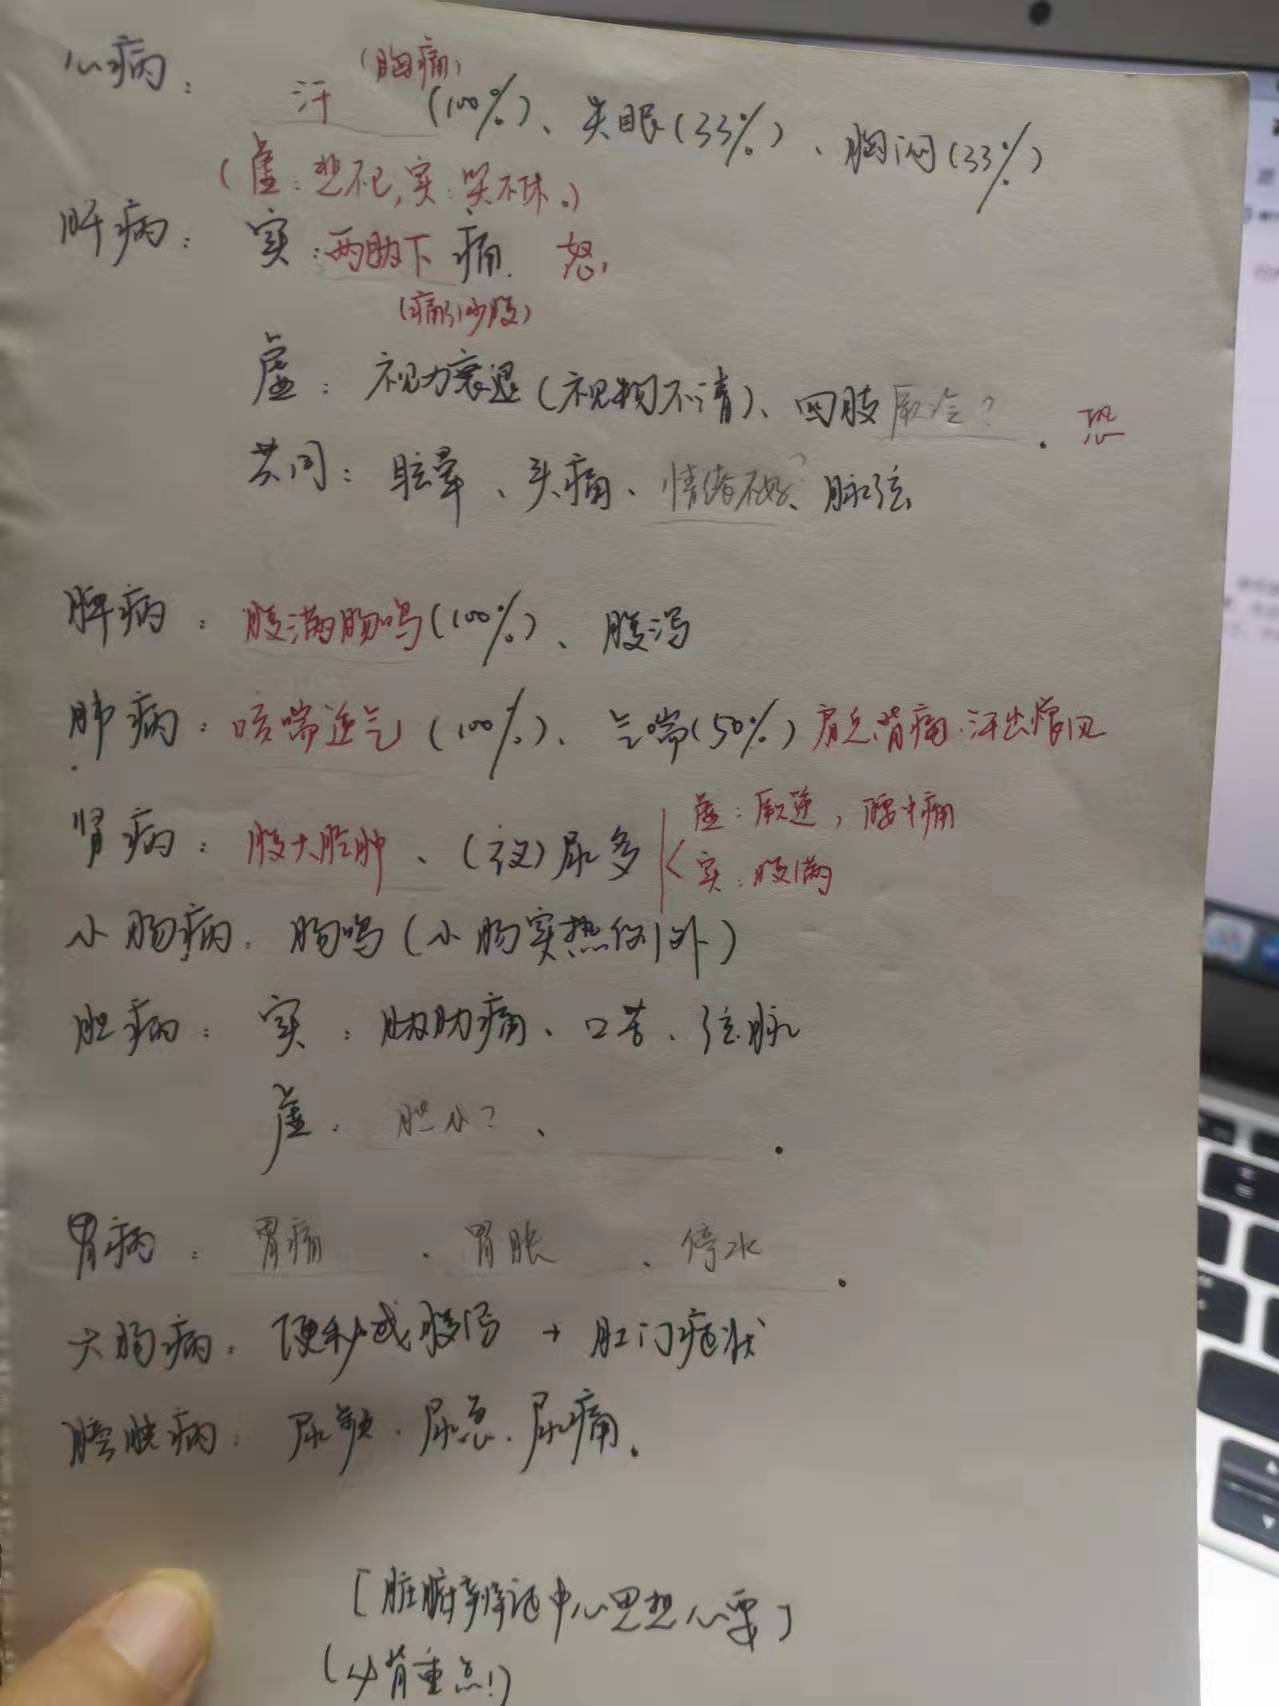 (胸痛)
心病： 汗 (100%)、失眠(33%)、胸闷(33%)
(虚：悲不已,实：笑不休。)
肝病： 实：两胁下痛. 怒,
(痛引少腹)
虚：视力衰退(视物不清)、四肢厥冷？. 恐
共同：眩晕、头痛、情绪不好？、脉弦
脾病：腹满肠鸣(100%)、腹泻
肺病：咳喘逆气(100%)、气喘(50%) 肩背痛.汗出
肾病：腹大胫肿、(夜)尿多
虚：厥逆，腰中痛
实：腹满
小肠病：肠鸣(小肠实热例外)
胆病： 实：胁肋痛、口苦、弦脉
虚：胆小？、 .
胃病：胃痛、胃胀、停水.
大肠病：便秘或腹泻 + 肛门症状
膀胱病：尿频.尿急.尿痛.
[脏腑辨证中心思想心要]
(必背重点!)